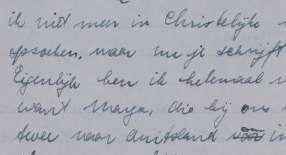 ik niet meer in Christelijke
opzoeken, maar me je schrijft
Eigenlijk ben ik helemaal
want Marga, die bij ons
twee naar Duitsland in